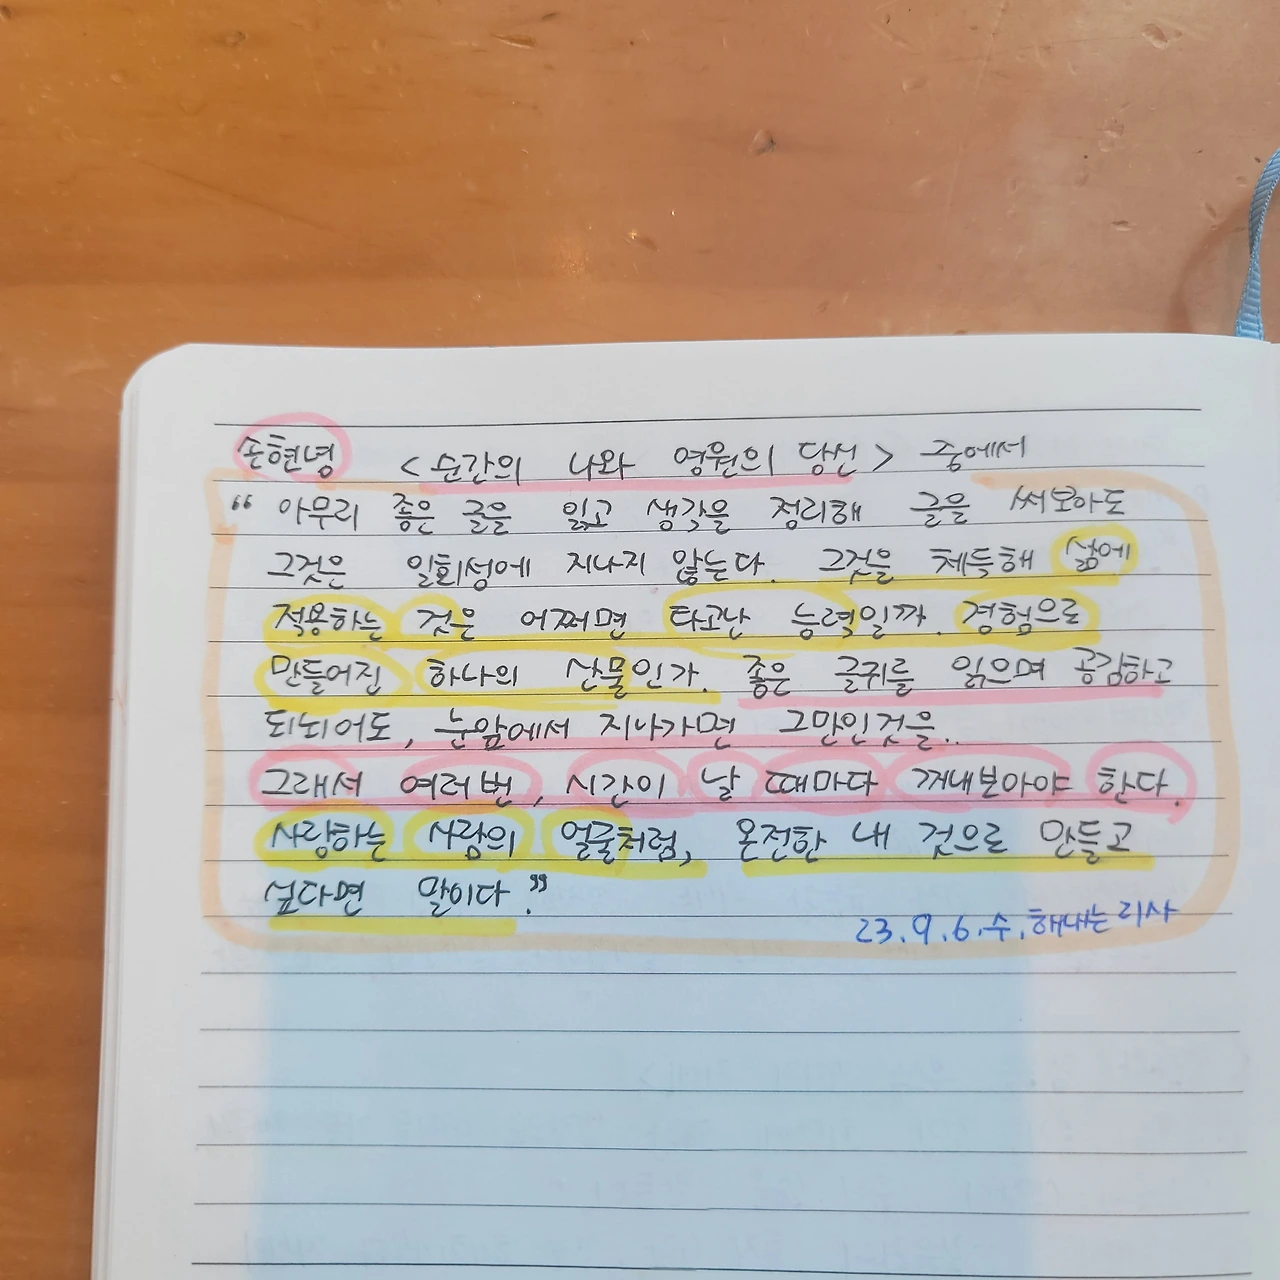 손현녕 <순간의 나와 영원의 당신> 중에서
“ 아무리 좋은 글을 읽고 생각을 정리해 글을 써보아도
그것은 일회성에 지나지 않는다. 그것을 체득해 삶에
적용하는 것은 어쩌면 타고난 능력일까. 경험으로
만들어진 하나의 산물인가. 좋은 글귀를 읽으며 공감하고
되뇌어도, 눈앞에서 지나가면 그만인것을..
그래서 여러번, 시간이 날 때마다 꺼내보아야 한다.
사랑하는 사람의 얼굴처럼, 온전한 내 것으로 만들고
싶다면 말이다.”
23.9.6.수.해내는리사